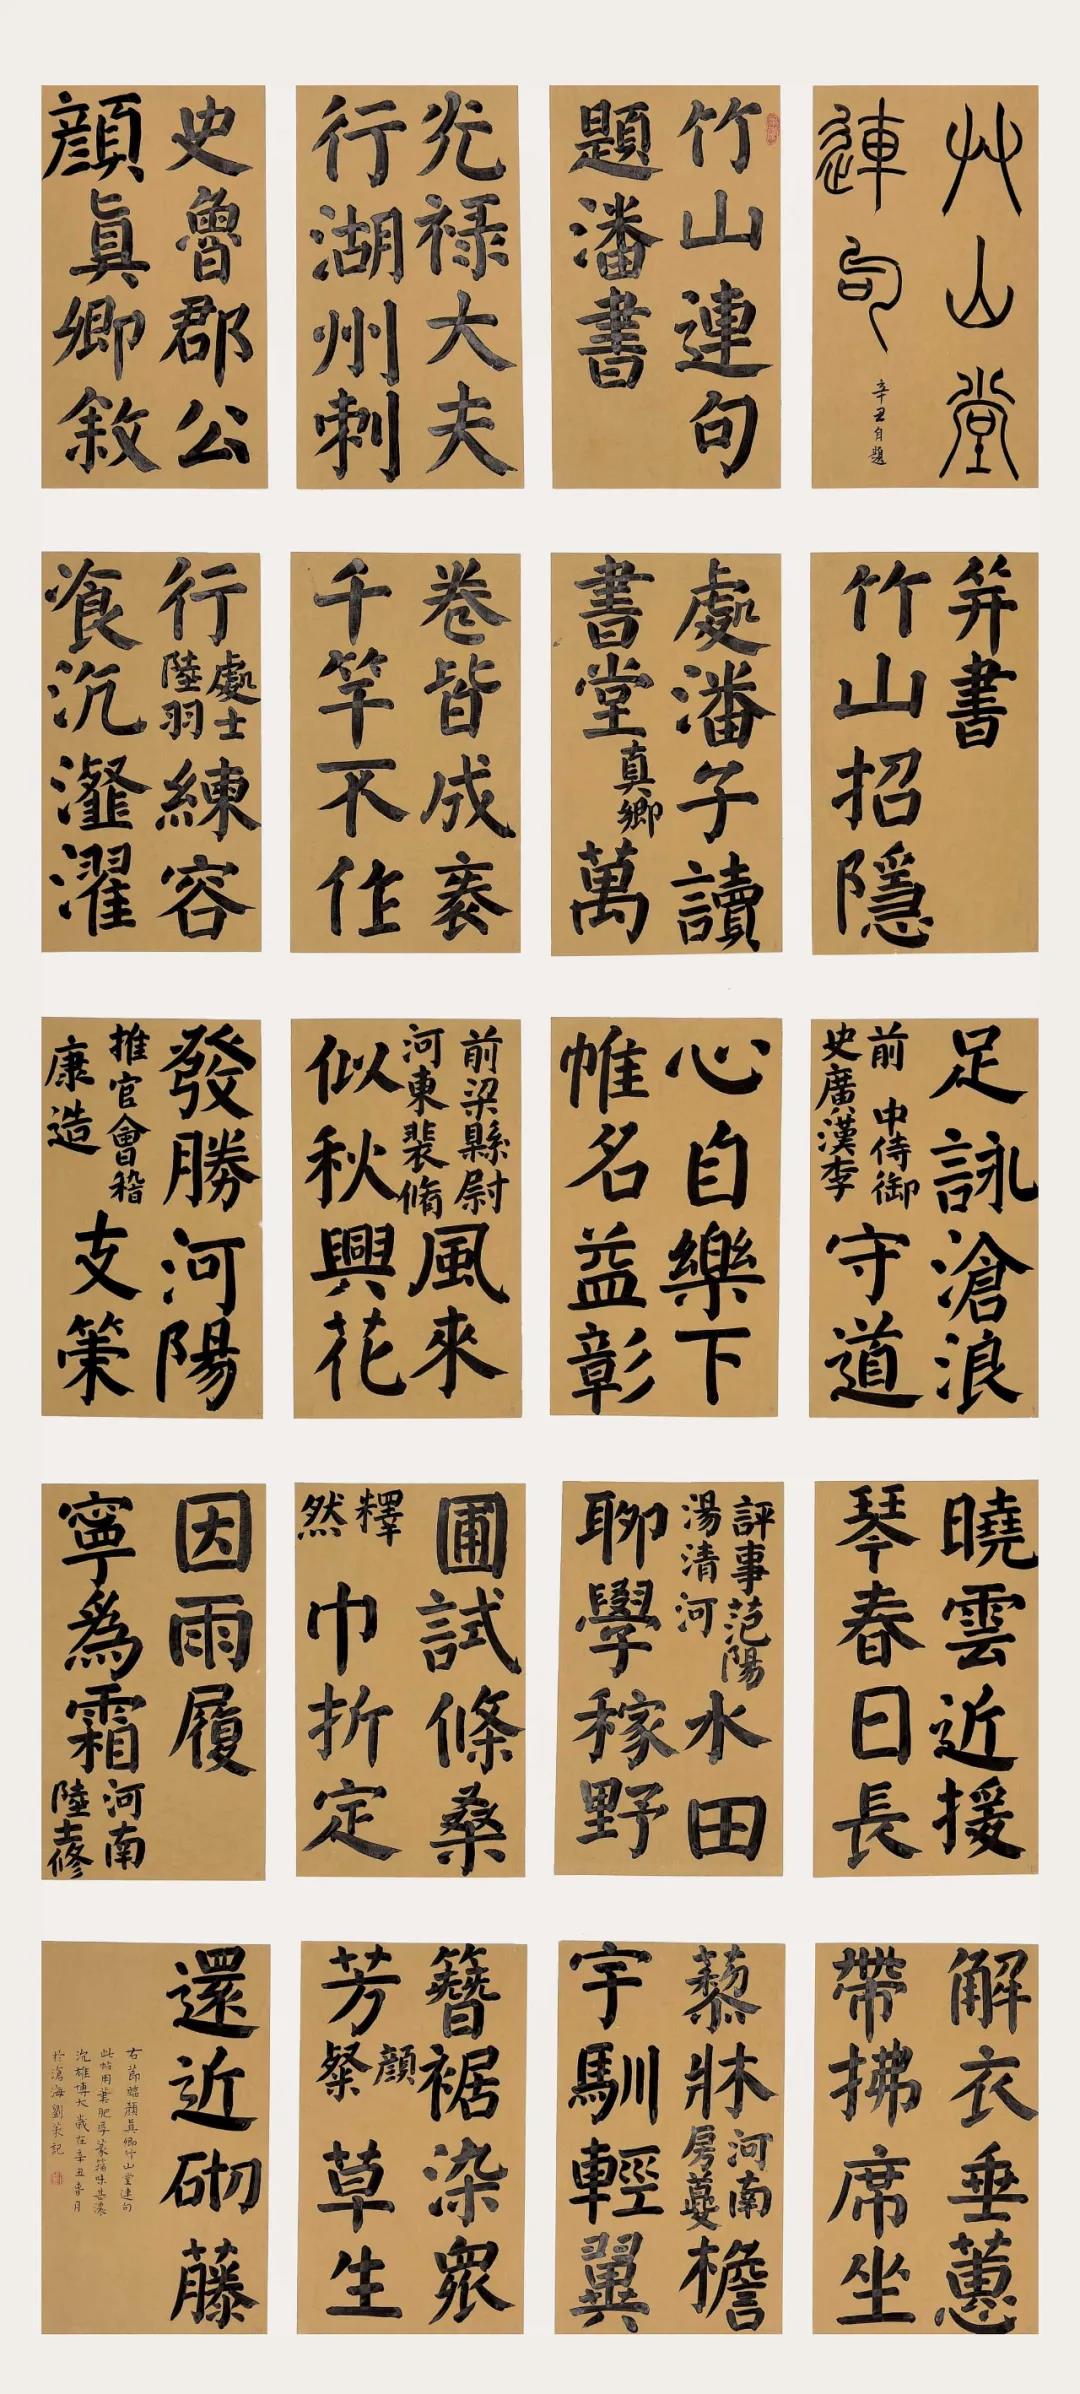 竹山堂
連句
辛丑自題
竹山連句
題潘書
光禄大夫
行湖州刺
史魯郡公
顔眞卿敘
并書
竹山招隱
處潘子讀
書堂
真卿
萬
卷皆成袠
千竿不作
行
處士
陸羽
練容
飡沉瀣濯
足詠滄浪
前 中侍御
史廣漢李
守道
心自樂下
帷名益彰
前梁縣尉
河東裴脩
風來
似秋興花
發勝河陽
推官會稽
康造
支策
曉雲近援
琴春日長
評事范陽
湯清河
水田
聊學稼野
圃試條桑
釋
然
巾折定
因雨履
寧爲霜
河南
陸士修
解衣垂蕙
帶拂席坐
藜牀
河南
房夔
檐
宇馴輕翼
簪裾染衆
芳
顔
粲
草生
還近砌藤
右節臨顔眞卿竹山堂連句
此帖用筆肥厚篆籀味甚濃
沉雄博大 歲在辛丑春月
於滄海劉策記